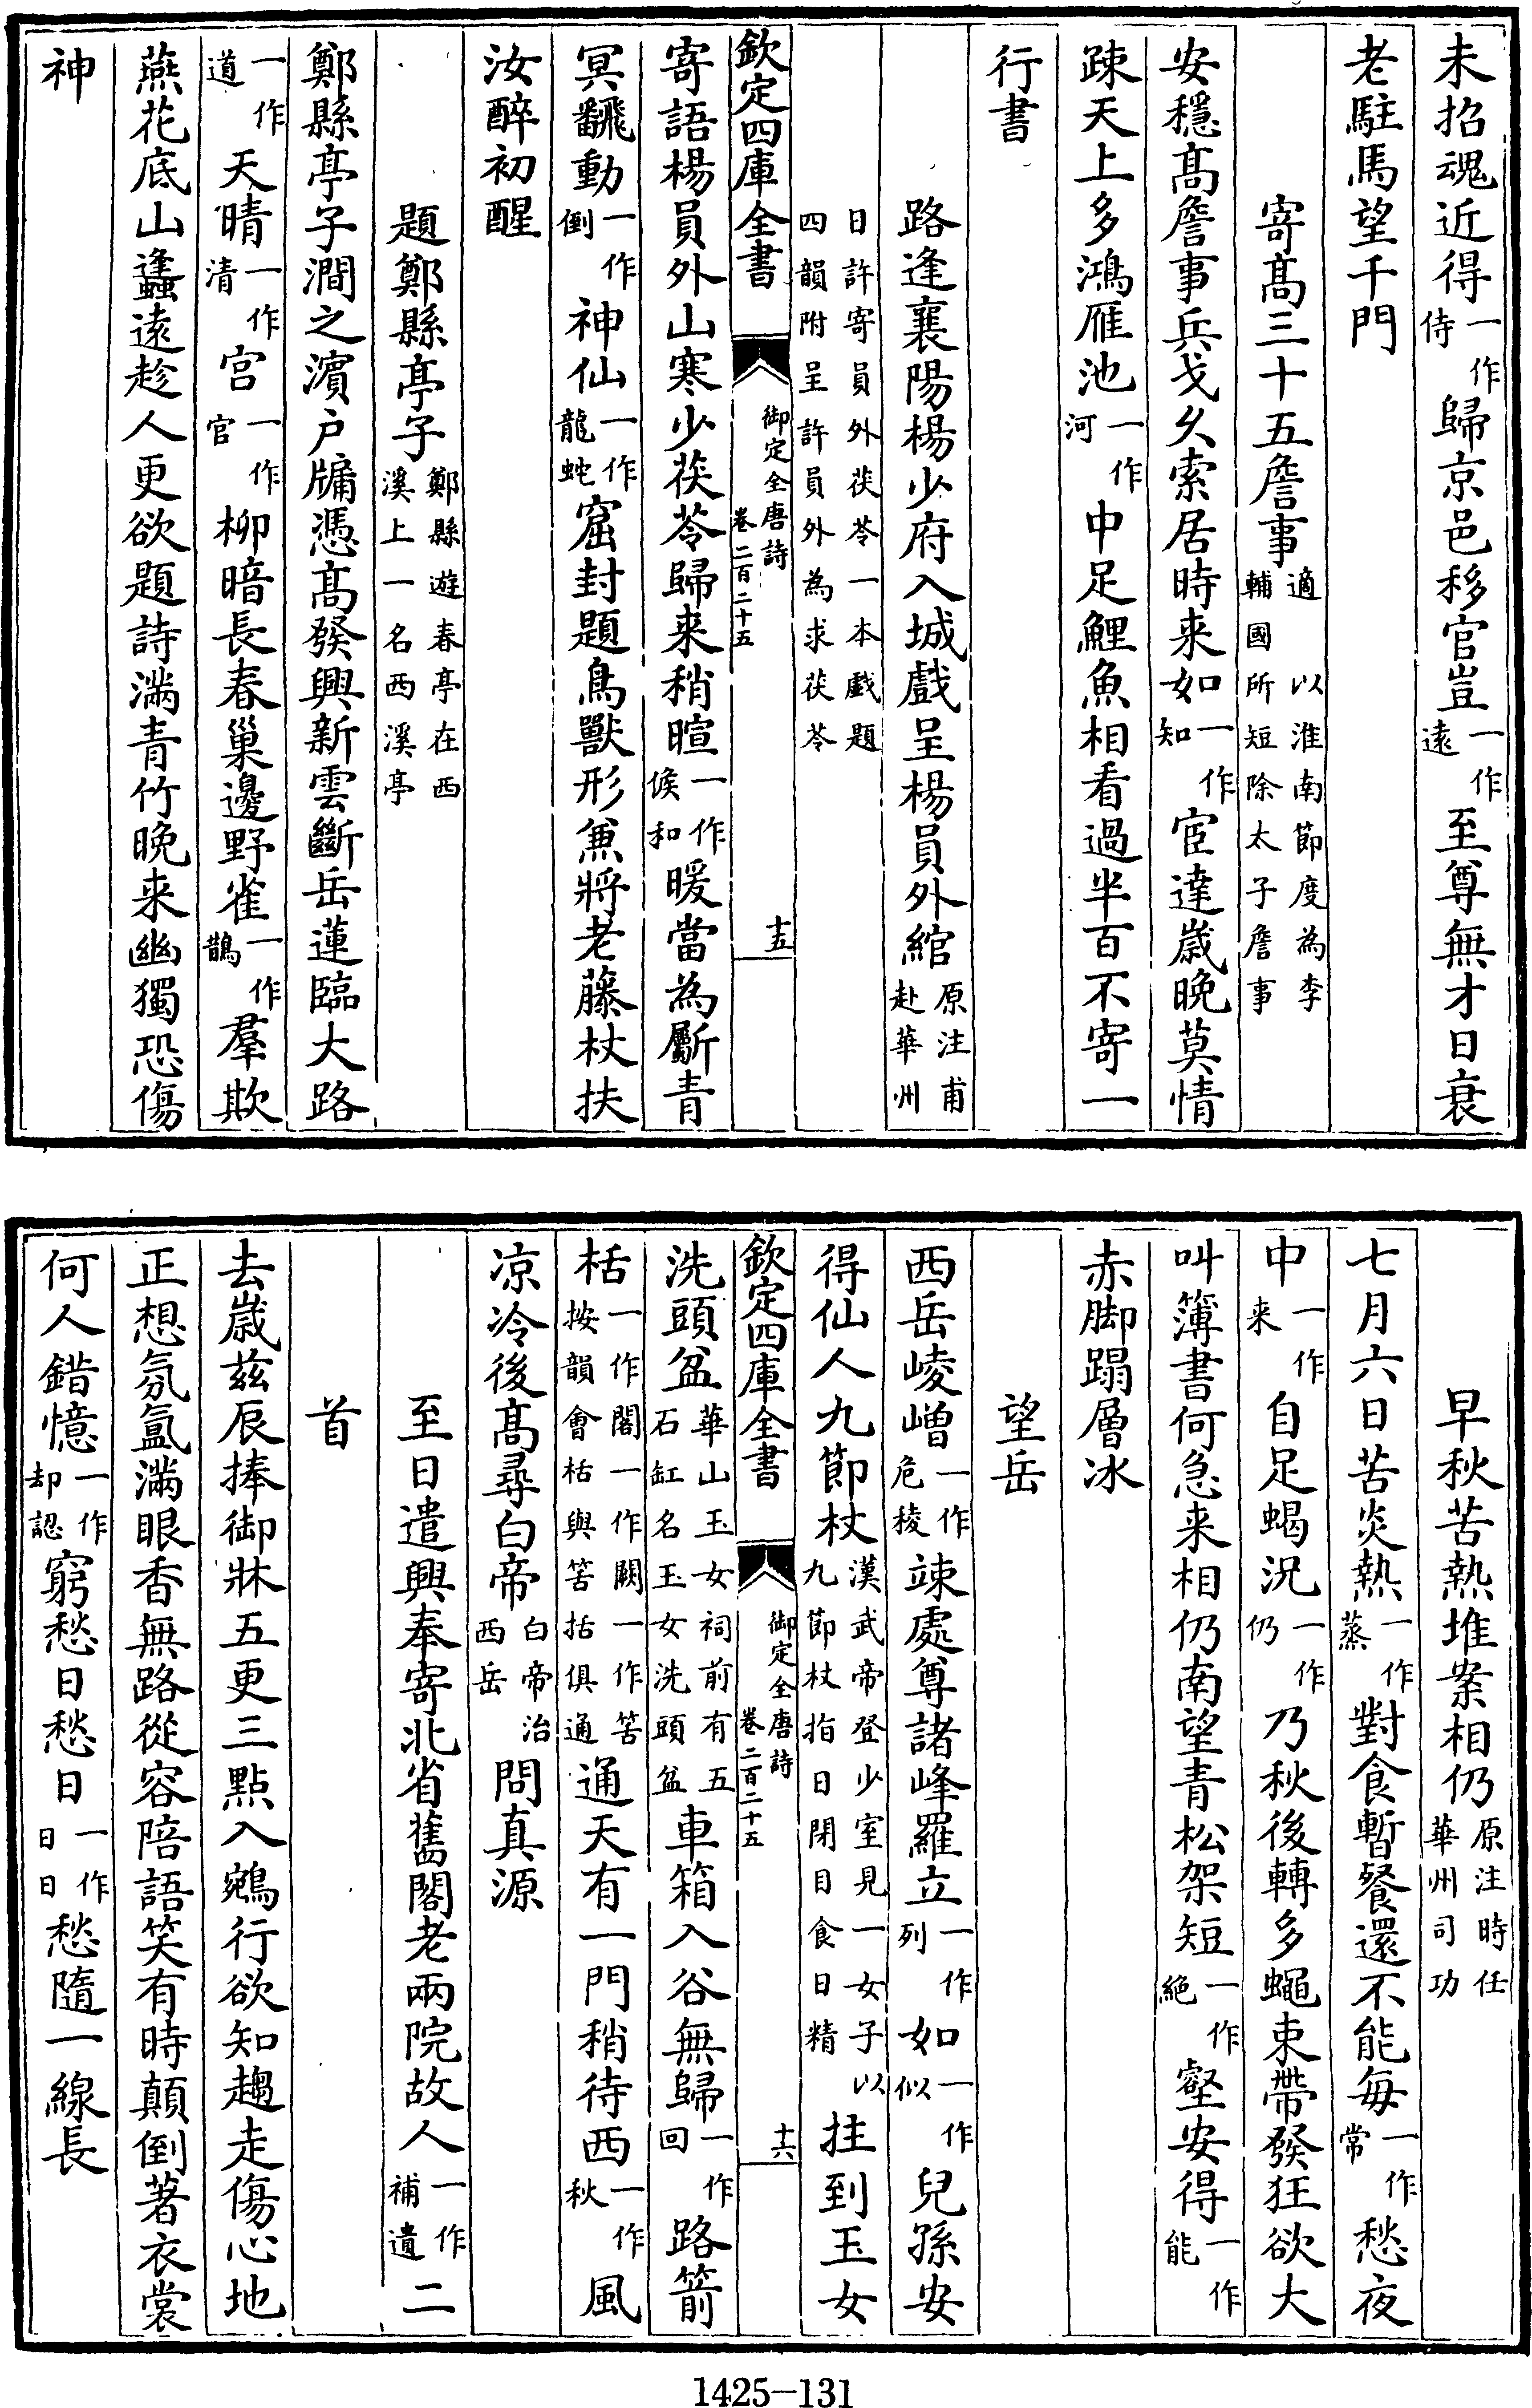 未招魂近得一作侍歸京邑移官豈一作遠至尊無才日衰
老駐馬望千門
寄髙三十五詹事適以淮南節度為李輔國所短除太子詹事
安穩髙詹事兵戈久索居時来如一作知宦達歲晩莫情
踈天上多鴻雁池一作河中足鯉魚相看過半百不寄一
行書
路逢襄陽楊少府入城戲呈楊員外綰原注甫赴華州
日許寄員外茯苓一本戲題四韻附呈許員外為求茯苓
欽定四庫全書
御定全唐詩
卷二百二十五
十五
寄語楊員外山寒少茯苓歸来稍暄一作候和暖當為斸青
冥飜動一作倒神仙一作龍蛇窟封題鳥獸形兼將老藤杖扶
汝醉初醒
題鄭縣亭子鄭縣遊春亭在西溪上一名西溪亭
鄭縣亭子澗之濵户牖憑髙發興新雲斷岳蓮臨大路
一作道天晴一作清宫一作官柳暗長春巢邊野雀一作鵲羣欺
燕花底山蠭逺趁人更欲題詩滿青竹晩来幽獨恐傷
神
早秋苦熱堆案相仍原注時任華州司功
七月六日苦炎熱一作蒸對食暫餐還不能每一作常愁夜
中一作来自足蝎況一作仍乃秋後轉多蠅束帶發狂欲大
叫簿書何急来相仍南望青松架短一作絶壑安得一作能
赤脚蹋層冰
望岳
西岳崚嶒一作危稜竦處尊諸峰羅立一作列如一作似兒孫安
得仙人九節杖漢武帝登少室見一女子以九節杖指日閉目食日精拄到玉女
欽定四庫全書
御定全唐詩
卷二百二十五
十六
洗頭盆華山玉女祠前有五石缸名玉女洗頭盆車箱入谷無歸一作回路箭
栝一作閣一作闕一作筈按韻會栝與筈括俱通通天有一門稍待西一作秋風
凉冷後髙尋白帝白帝治西岳問真源
至日遣興奉寄北省舊閣老兩院故人一作補遺二
首
去歲茲辰捧御牀五更三點入鵷行欲知趨走傷心地
正想氛氳滿眼香無路從容陪語笑有時顛倒著衣裳
何人錯憶一作却認窮愁日愁日一作日日愁隨一線長
1425-131